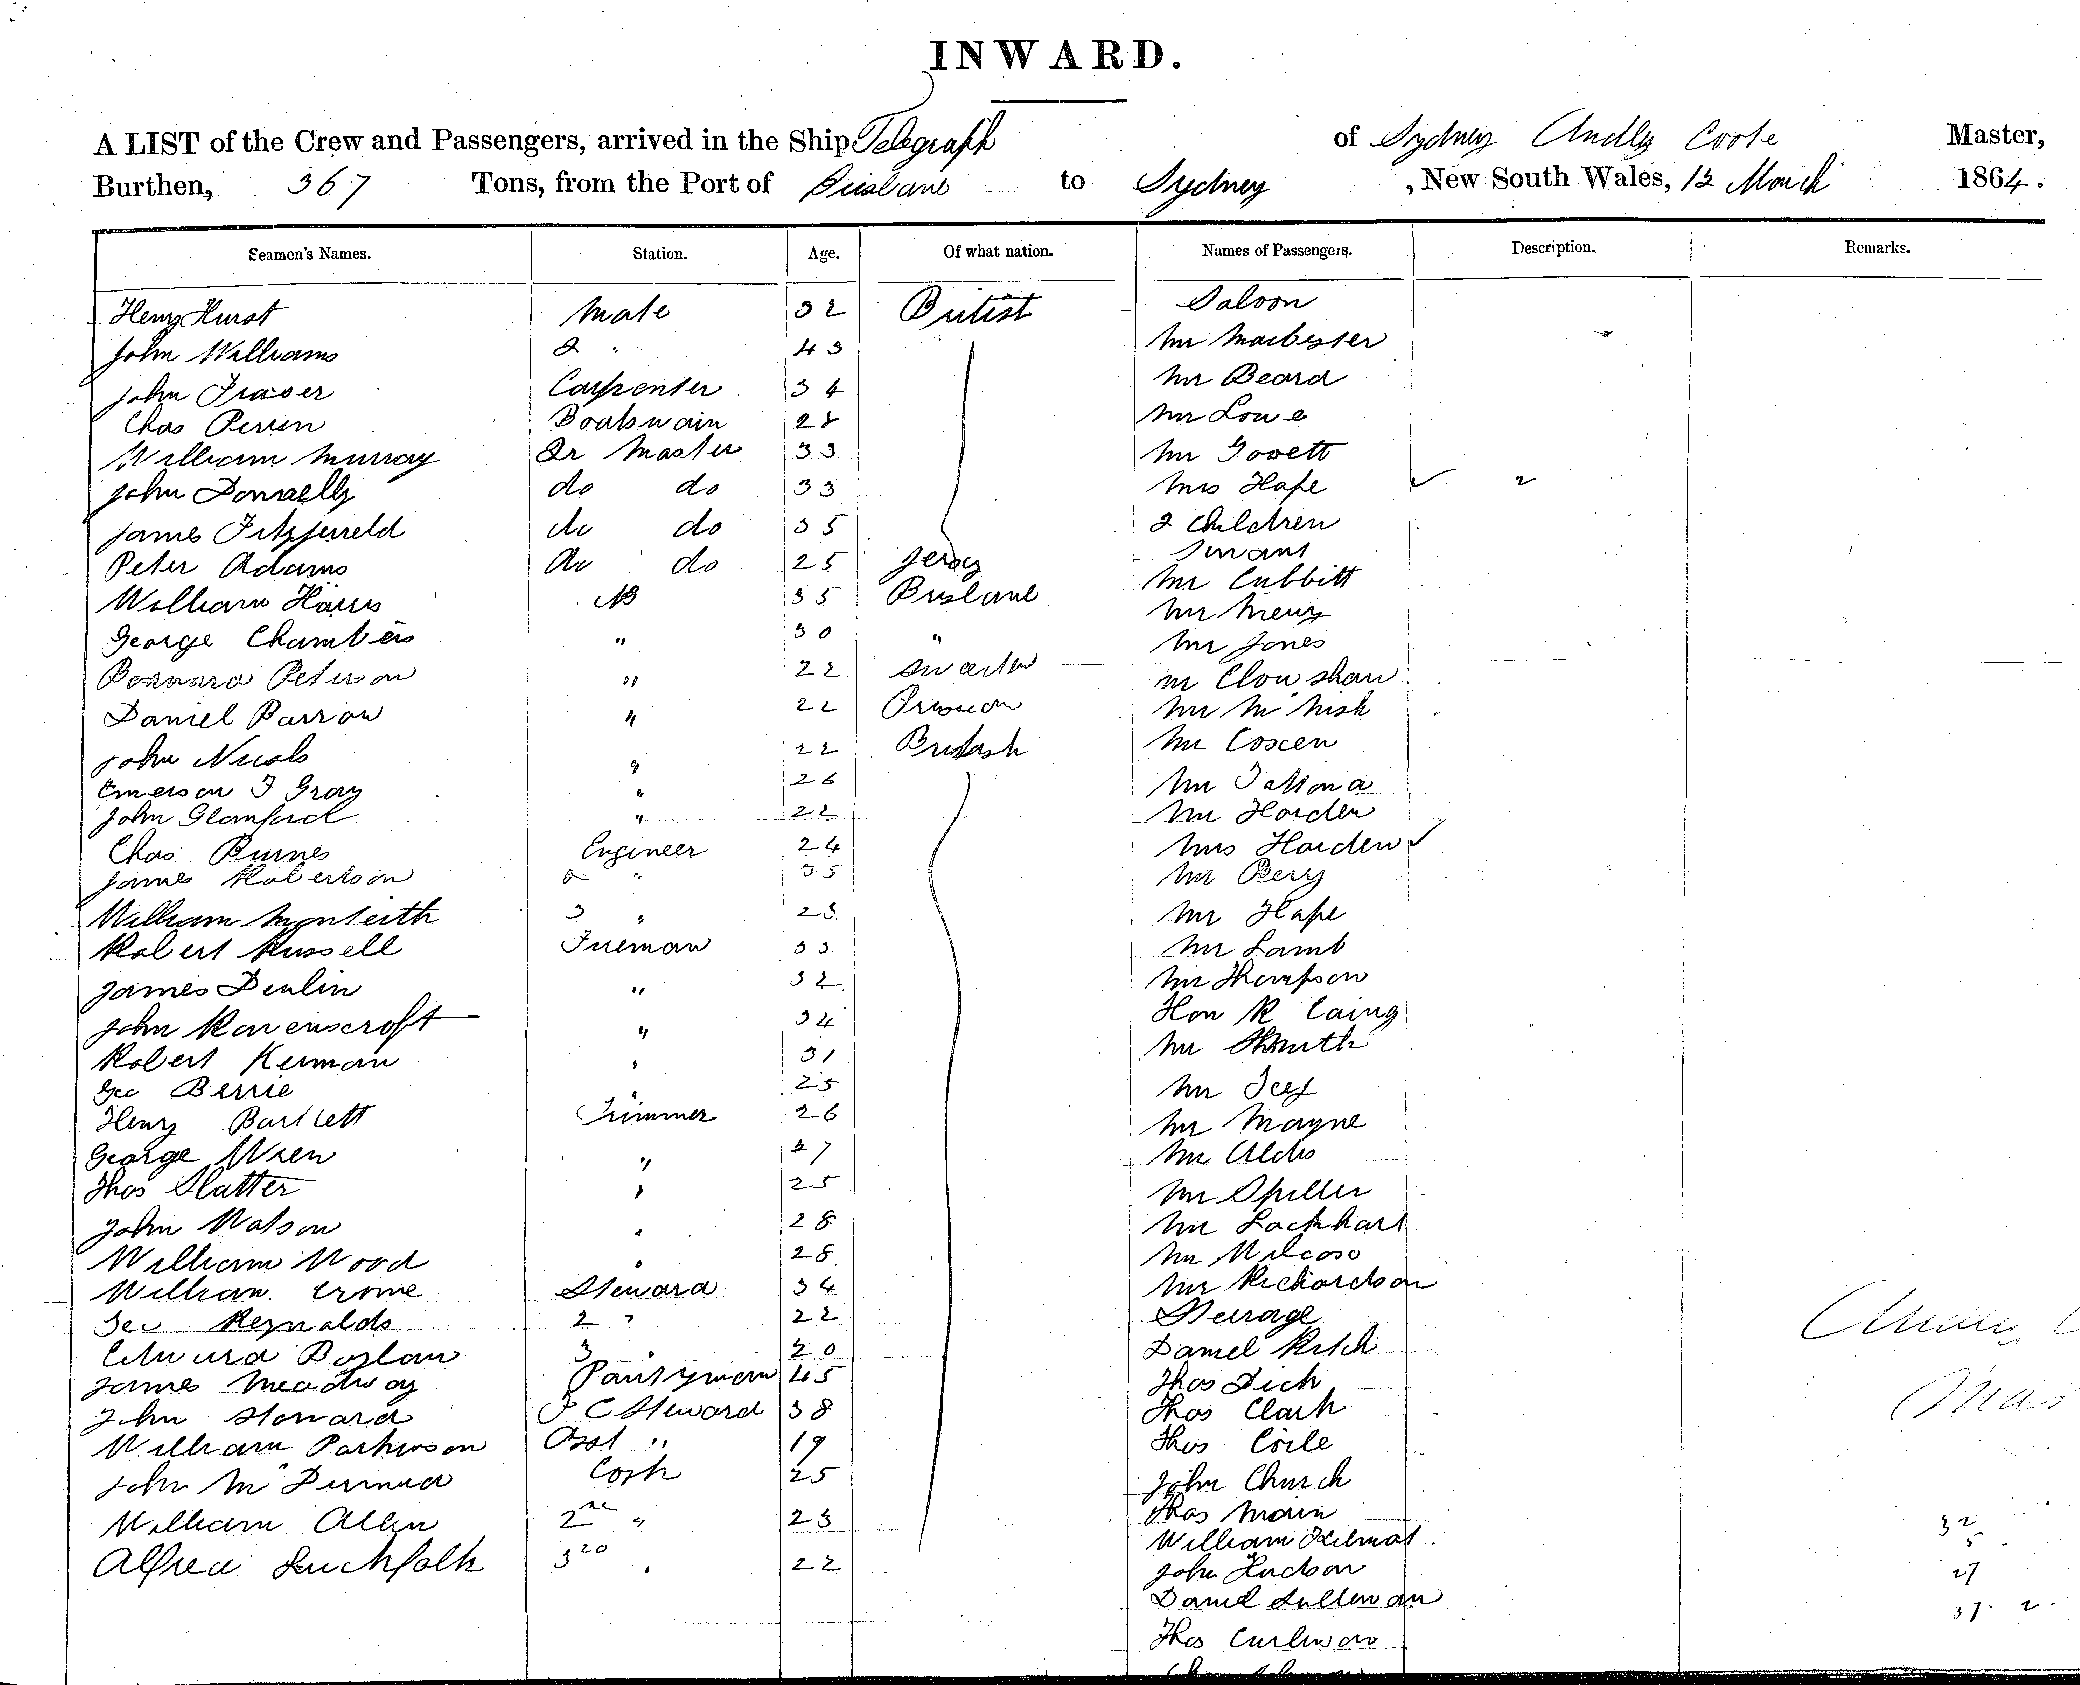 INWARD.
A LIST of the Crew and Passengers, arrived in the Ship Telegraph of Sydney Andw Coote Master,
Burthen, 367 Tons, from the Port of Brisbane to Sydney , New South Wales, 12 March 1864.
Seamen's Names. Station. Age. Of what nation. Names of Passengers. Description. Remarks.
Henry Hurst Mate 32 British Saloon
John Williams 2 " 43 Mr
John Fraser Carpenter 34 Mr Beard
Chas Perrin Boatswain 28 Mr Lowe
William Murray Qr Master 33 Mr Govett
John Donnelly do do 33 Mrs Hape
James Fitzgerreld do do 35 2 Children
Peter Adams do do 25 Jersey Servant
William Harris AB 35 Brisbane Mr Cubbitt
George Chambers " 30 " Mr
Peterson " 22 Mr Jones
Daniel Barron " 22 Mr Clou shaw
John " 22 British Mr Mc Nish
Emerson F Gray " 26 Mr Coxen
John " 22 Mr
Chas Burnes Engineer 24 Mr Horden
James Robertson 2 " 35 Mrs Horden
William Monteith 3 " 23 Mr Bery
Robert Russell Fireman 33 Mr Hape
James Devlin " 32 Mr Lamb
John Ravenscroft " 34 Mr Thompson
Robert Kerman " 31 Hon R
Geo Berrie " 25 Mr
Henry Bartlett Trimmer 26 Mr
George Wren " 27 Mr Mayne
Thos Slatter " 25 Mr Aldis
John Watson " 28 Mr Spiller
William Wood " 28 Mr Lockhart
William Crome Steward 34 Mr
Geo Reynolds 2 " 22 Mr Richardson
Edward Boylan 3 " 20 Steerage
James Meadway Pantryman 45 Daniel
John Howard F C Steward 38 Thos Dick
William Parkinson Asst " 19 Thos Clark
John Mc Dermid Cook 25 Thos
William Allen 2nd " 23 John Church
Alfred Suchfolk 3rd " 22 Thos Main
William
John Hudson
Daniel Sullivan
Thos
32
5
27
37 2